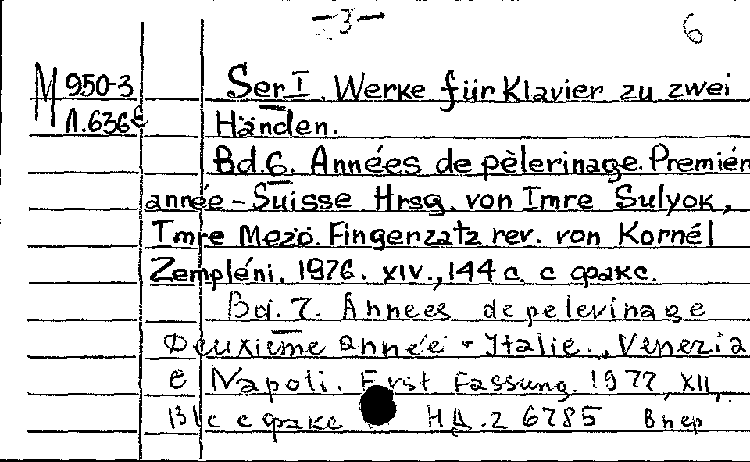 -3- 6
М 950-3 Ser I. Werke für Klavier zu zwei
Л.636е Händen.
Bd.6. Années de pèlerinage. Premiér
année - Suisse Hrsg. von Imre Sulyok,
Imre Mezö. Fingenzatz rev. von Kornél
Zempléni. 1976. XIV., 144 с. с факс.
Bd. 7. Annees de pelevinage
Deuxieme année - Italie., Venezia
e Napoli. Erst Fassung. 1977, XII,
131 с с факс НД.2 6785 Впер